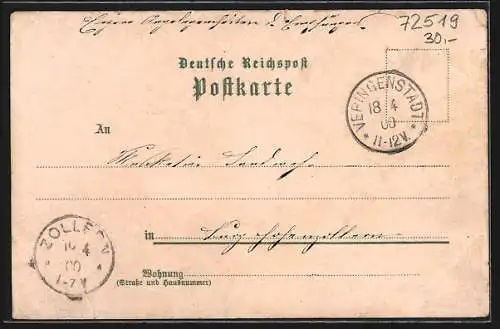 72519
30,-
Deutsche Reichspost
Postkarte
VERINGENSTADT
18 4
00
* 11-12V. *
An
ZOLLERN
4
00
1-7 V
in Burg Hohenzollern
Wohnung
(Straße und Hausnummer)